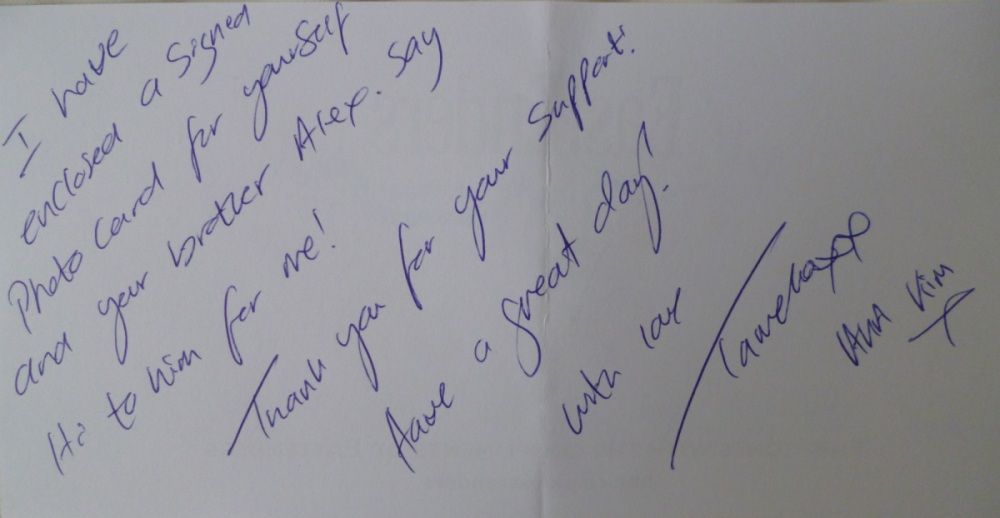 I have
enclosed a signed
Photo Card for yourself
and your brother Alex. Say
Hi to him for me!
Thank you for your support!
Have a great day!
with love
Tamekaxxx
AKA Kim